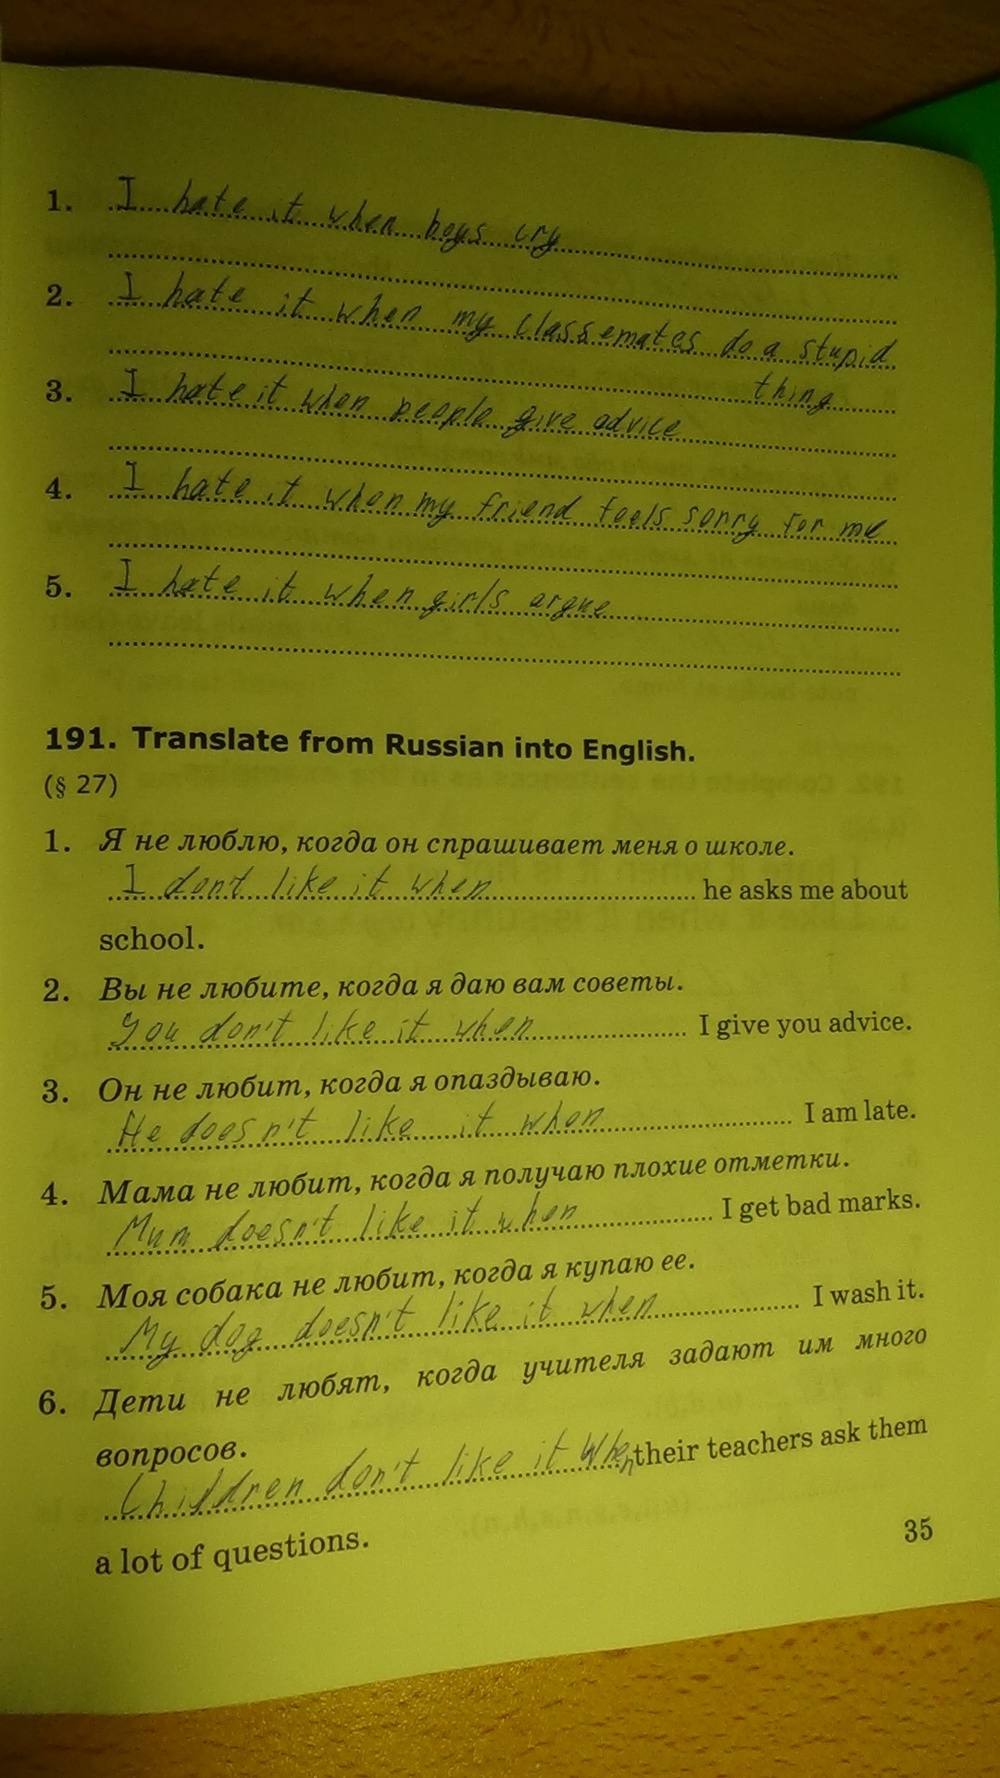 1. I hate it when boys cry
2. I hate it when my classemates do a stupid
thing
3. I hate it when people give advice
4. I hate it when my friend feels sorry for me
5. I hate it when girls argue
191. Translate from Russian into English.
(§ 27)
1. Я не люблю, когда он спрашивает меня о школе.
I don't like it when he asks me about
school.
2. Вы не любите, когда я даю вам советы.
You don't like it when I give you advice.
3. Он не любит, когда я опаздываю.
He doesn't like it when I am late.
4. Мама не любит, когда я получаю плохие отметки.
Mum doesn't like it when I get bad marks.
5. Моя собака не любит, когда я купаю ее.
My dog doesn't like it when I wash it.
6. Дети не любят, когда учителя задают им много
вопросов.
Children don't like it when their teachers ask them
a lot of questions.
35